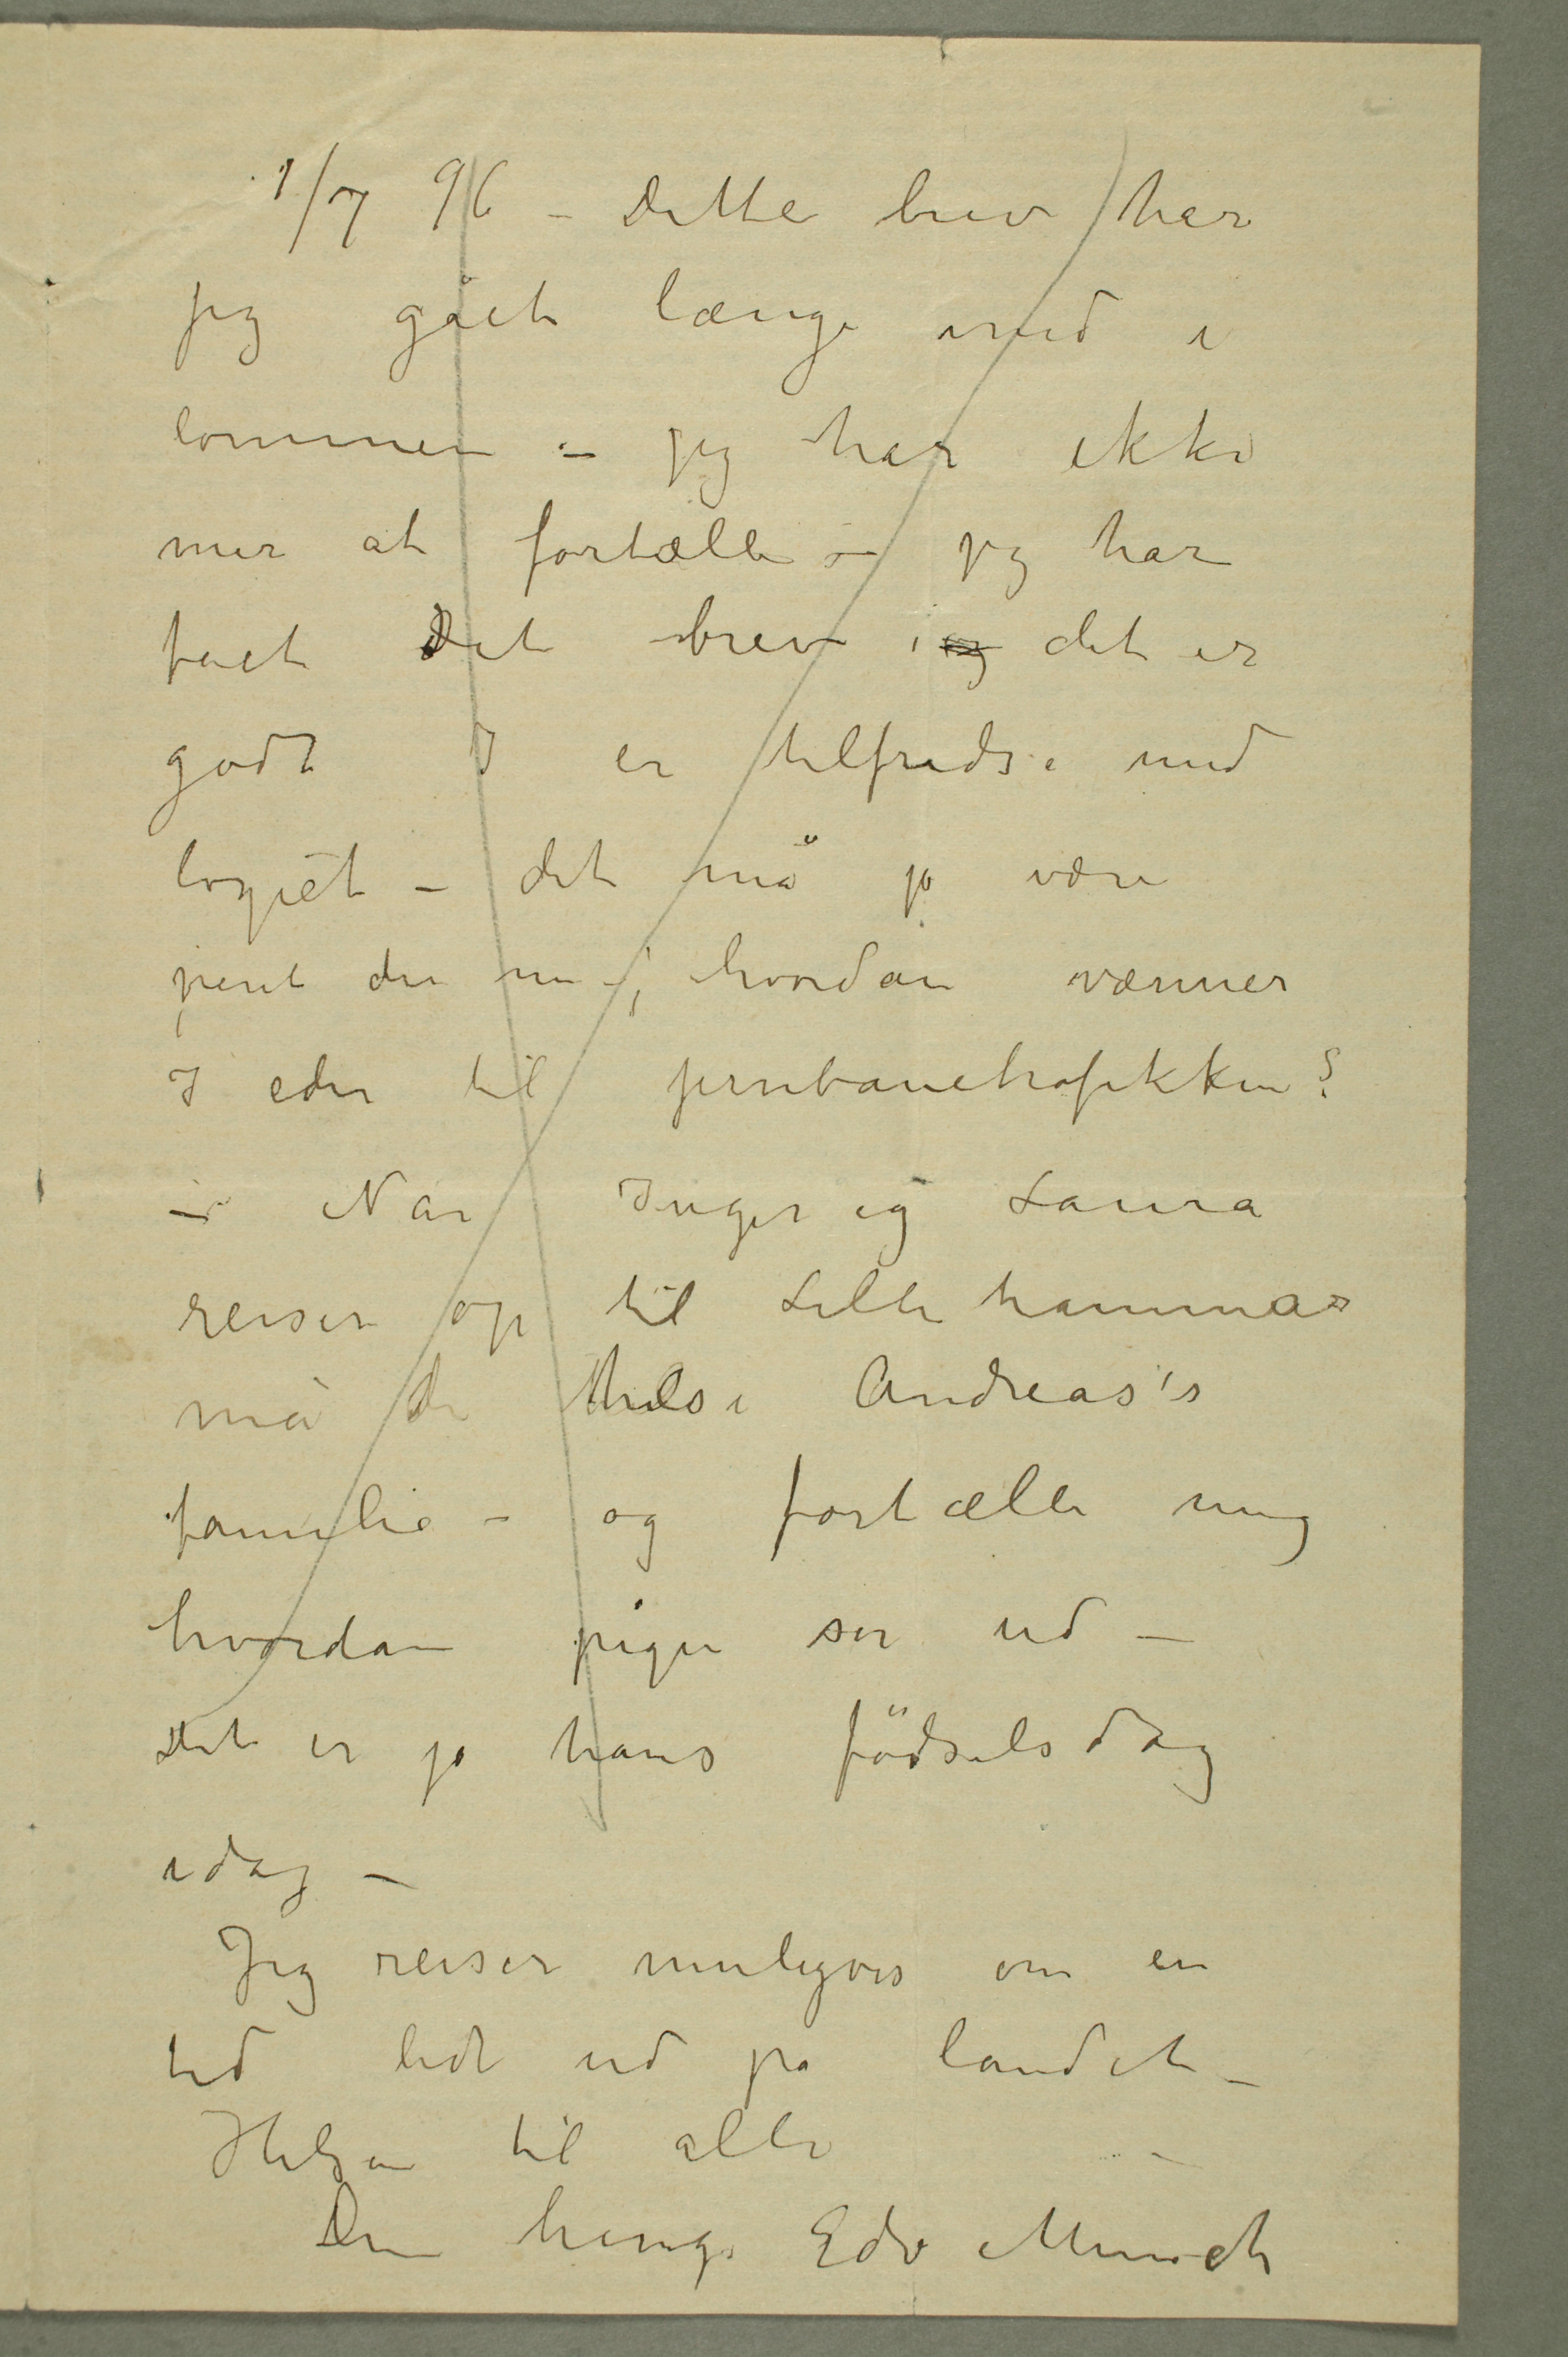 1/7 96 – Dette brev har
jeg gået længe med i
lommen – jeg har ikke
mer at fortælle – jeg har
fået Dit brev og det er
godt I er tilfredse med
logiet – det må jo være
pent der nu – hvordan vænner
I eder til jernbanetrafikken?
– Når Inger og Laura
reiser op til Lillehammar
må de hilse Andreas's
familie – og fortælle mig
hvordan pigen ser ud –
Det er jo hans födselsdag
idag –
Jeg reiser muligvis om en
tid lidt ud på landet –
Hilsen til alle –
Din heng. Edv Munch